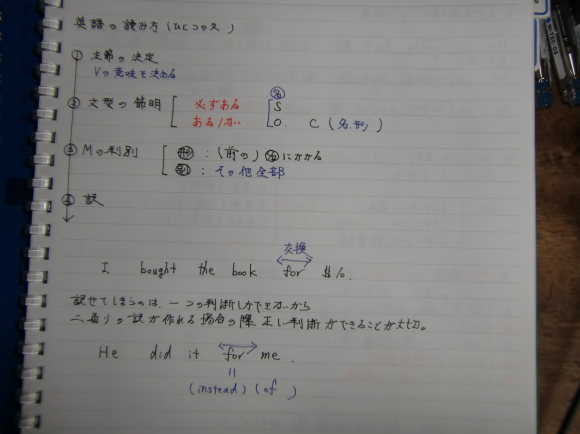 英語の読み方(ひとつの文)
① 主節の決定
Vの意味を決める
② 文型の節明 必ずある 名 S
ある/ない O. C (名.形)
③ Mの判別 形:(前の)名にかかる
副:その他全部
④ 訳
交換
I bought the book for $10.
訳せてしまうのは、一つの判断しかできないから
二通りの訳が作れる場合の際 正しい判断ができることが大切。
He did it for me.
=
(instead) (of )